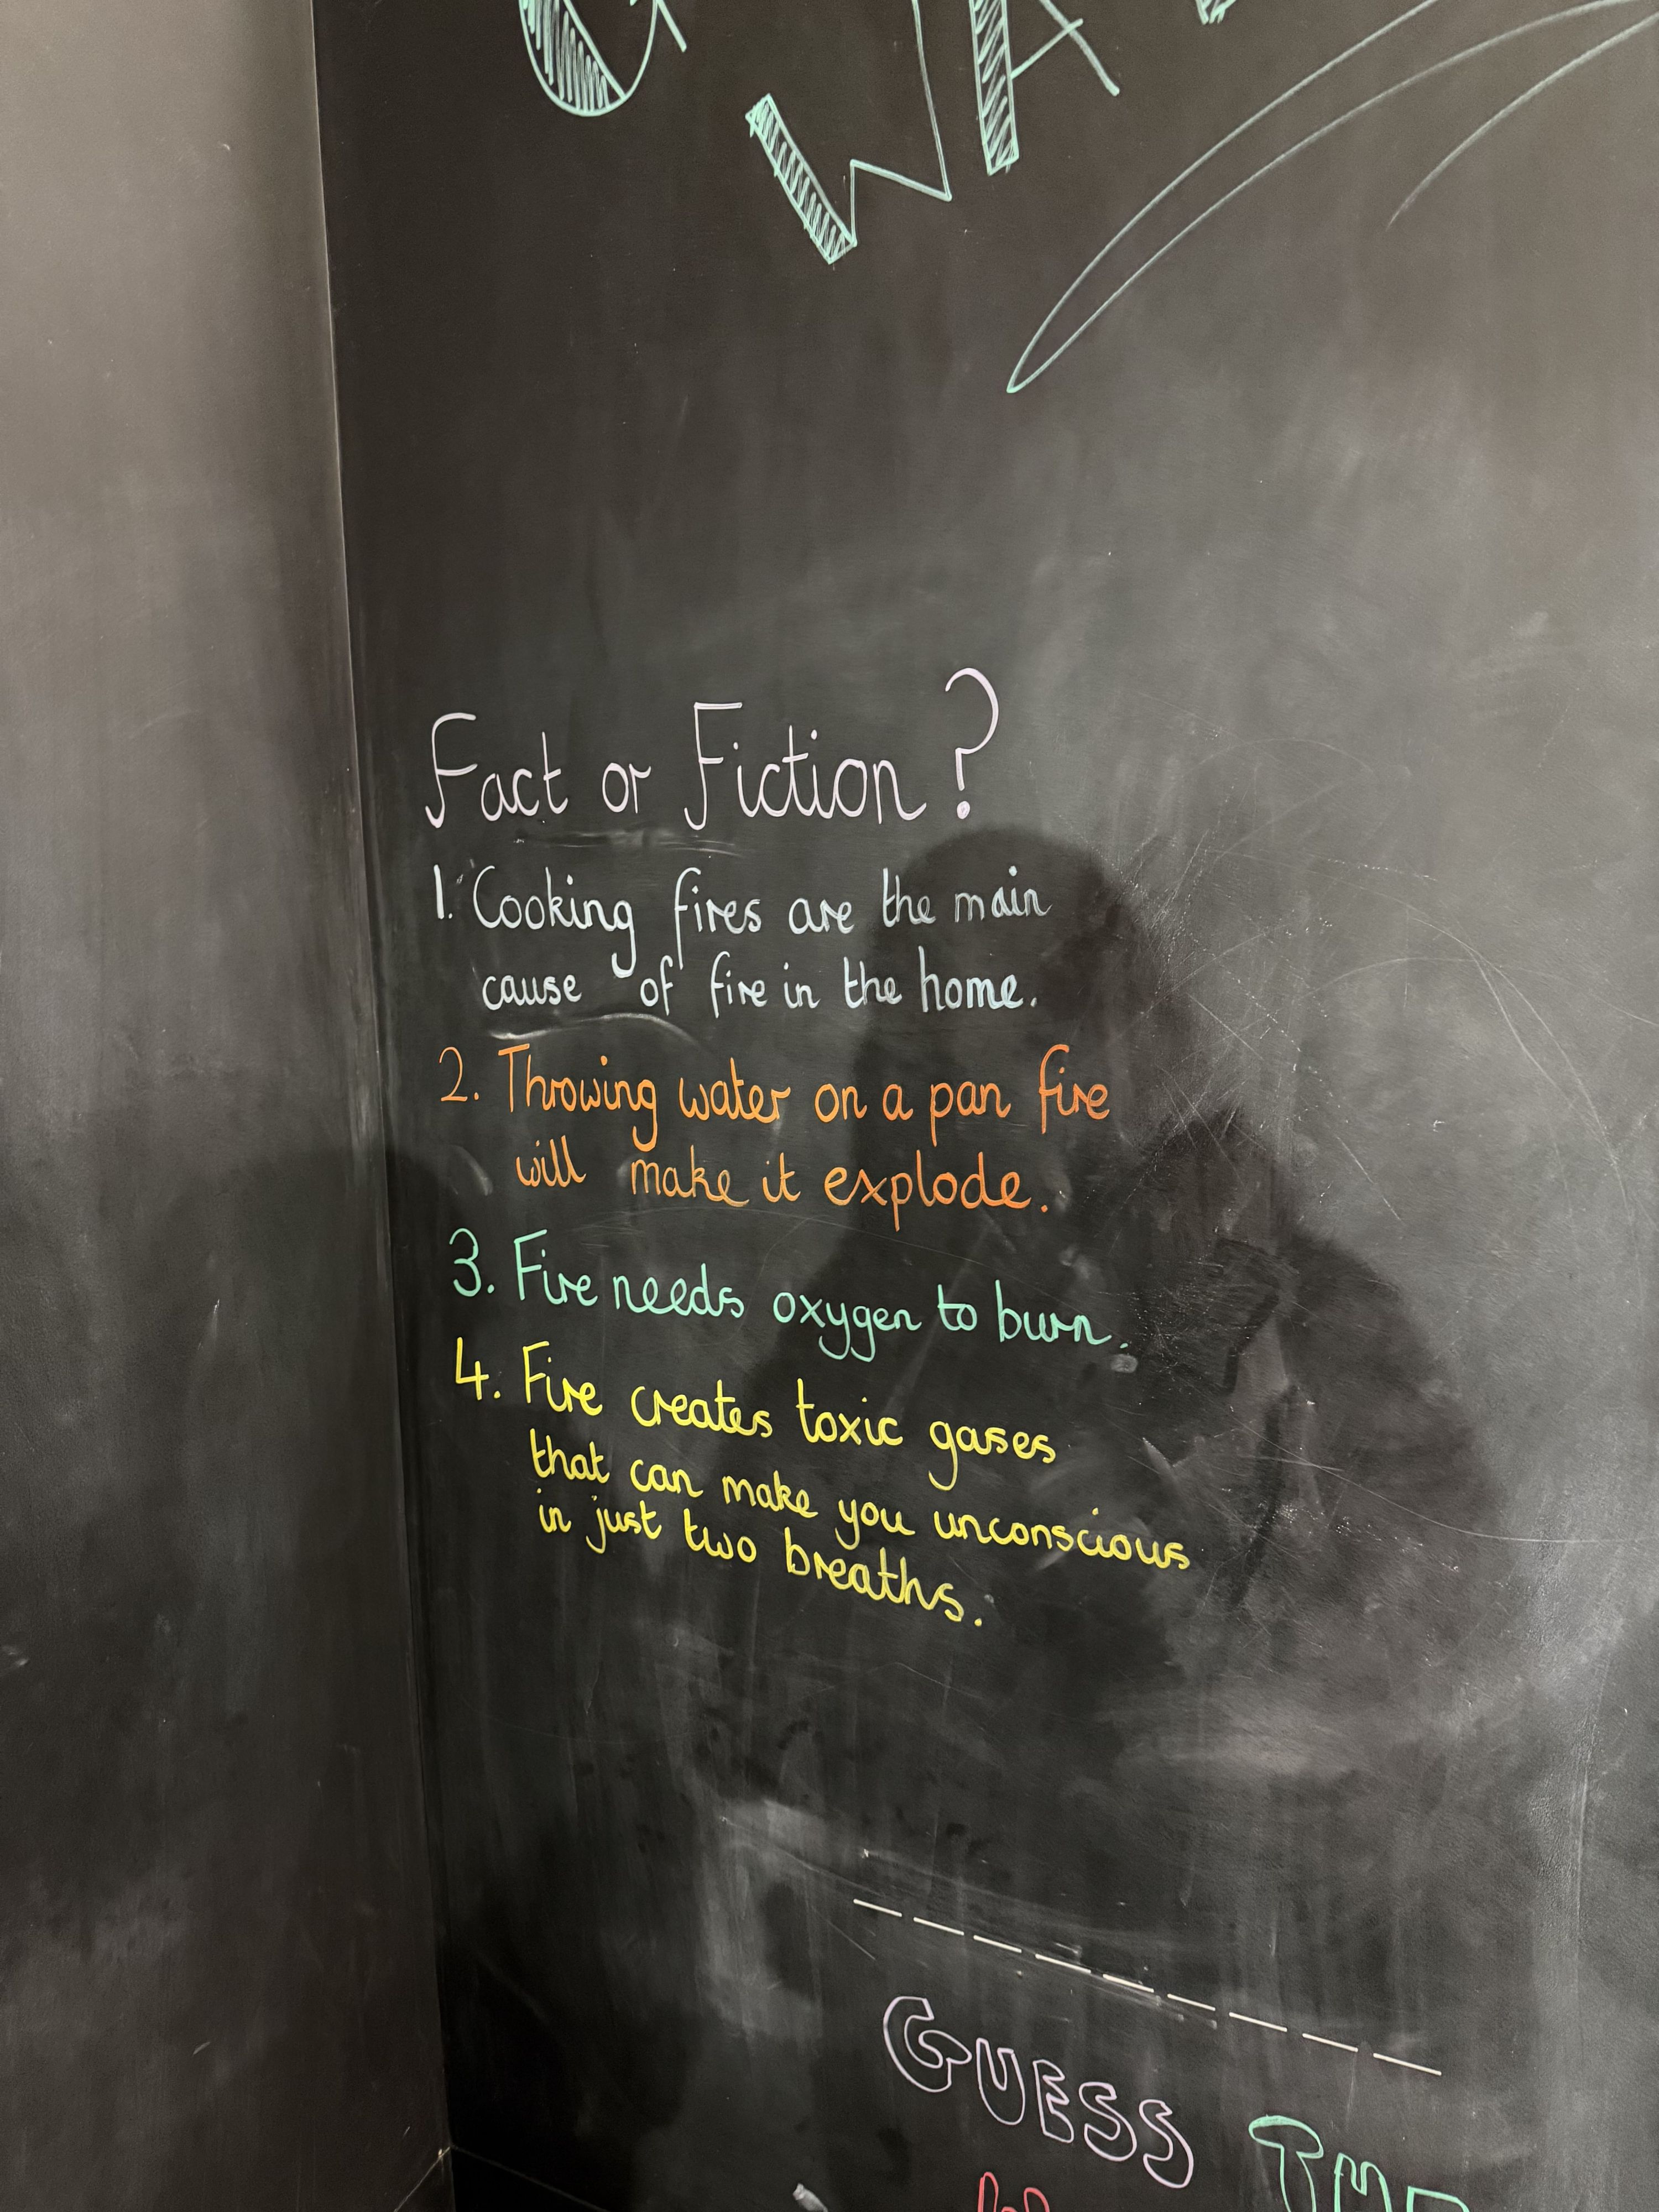 WA
Fact or Fiction?
1. Cooking fires are the main
cause of fire in the home.
2. Throwing water on a pan fire
will make it explode.
3. Fire needs oxygen to burn.
4. Fire creates toxic gases
that can make you unconscious
in just two breaths.
GUESS THE